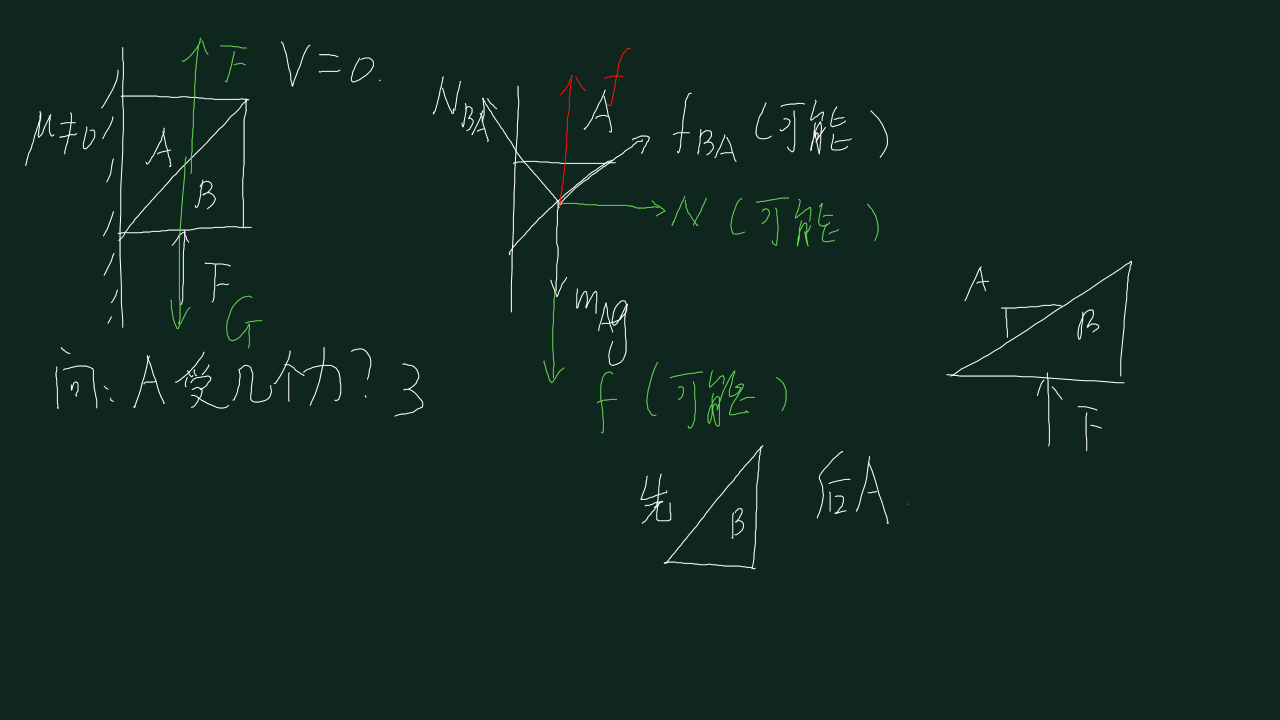 F V=0.
μ≠0
A
B
F
G
问:A受几个力?3
N_BA
f
A
f_BA(可能)
N(可能)
m_Ag
f(可能)
先
B
后A
A
B
F